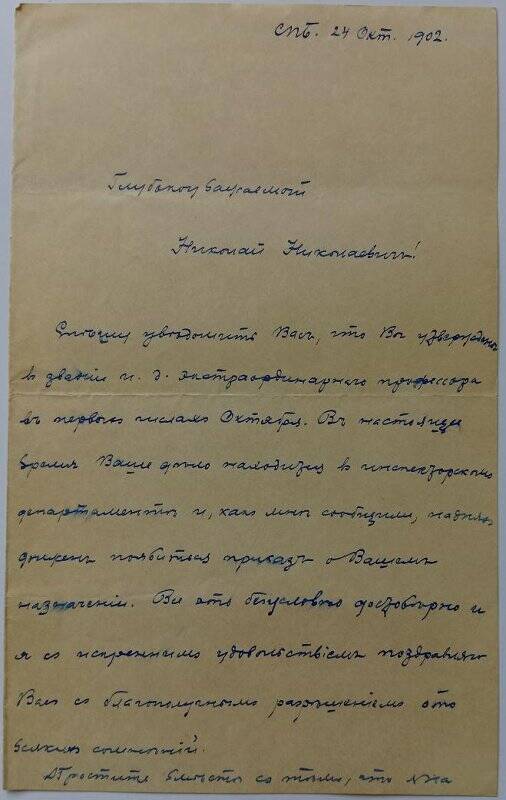 СПб. 24 Окт. 1902.
Глубокоуважаемый
Николай Николаевич!
Спѣшу увѣдомить Васъ, что Вы утверждены
в званіи и. д. экстраординарнаго профессора
въ первыхъ числахъ Октября. Въ настоящее
время Ваше дѣло находится в инспекторскомъ
департаментѣ и, какъ мнѣ сообщили, на дняхъ
долженъ появиться приказъ о Вашемъ
назначеніи. Все это безусловно достовѣрно и
я съ искреннимъ удовольствіемъ поздравляю
Васъ съ благополучнымъ разрѣшеніемъ ото
всякихъ сомнѣній.
Простите вмѣстѣ съ тѣмъ, что я на